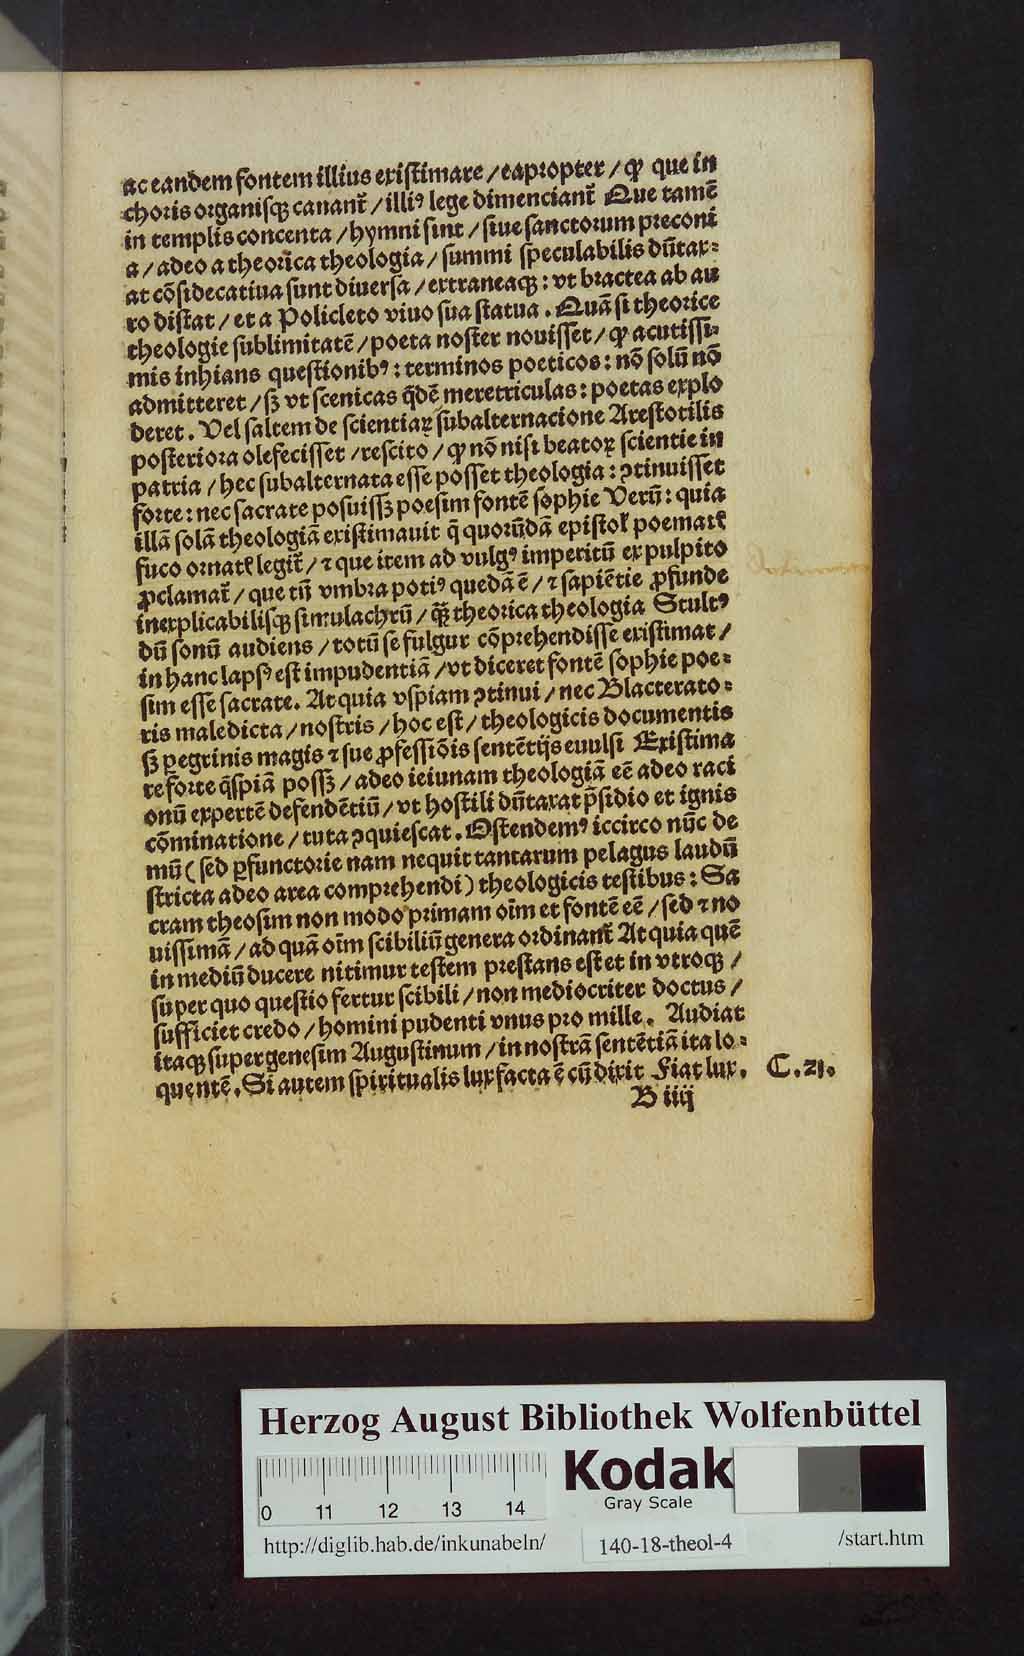 ac eandem fontem illius existimare / eapropter / ꝙ que in
choris organisqꝫ canant᷑ / illiꝰ lege dimenciant᷑ Que tamē
in templis concenta / hymni sint / siue sanctorum preconi
a / adeo a theorica theologia / summi speculabilis dūtax⸗
at cōsidecatiua sunt diuersa / extraneaqꝫ : vt bractea ab au
ro distat / et a Policleto viuo sua statua . Quā si theorice
theologie sublimitatē / poeta noster nouisset / ꝙ acutissi⸗
mis inhians questionibꝰ : terminos poeticos : nō solū nō
admitteret / sꝫ vt scenicas q̄dē meretriculas : poetas explo
deret . Vel saltem de scientiaꝝ subalternacione Arestotilis
posteriora olefecisset / rescito / ꝙ nō nisi beatoꝝ scientie in
patria / hec subalternata esse posset theologia : ꝯtinuisset
forte : nec sacrate posuissꝫ poesim fontē sophie Verū : quia
illā solā theologiā existimauit q̄ quorūdā epistol᷑ poemat᷑
fuco ornat᷑ legit᷑ / ⁊ que item ad vulgꝰ imperitū ex pulpito
ꝓclamat᷑ / que tū vmbra potiꝰ quedā ē / ⁊ sapiētie ꝓfunde
inexplicabilisqꝫ simulachrū / q̄ꝫ theorica theologia Stultꝰ
dū sonū audiens / totū se fulgur cōprehendisse existimat /
in hanc lapsꝰ est impudentiā / vt diceret fontē sophie poe⸗
sim esse sacrate. At quia vspiam ꝯtinui / nec Blacterato⸗
ris maledicta / nostris / hoc est / theologicis documentis
sꝫ ꝑegrinis magis ⁊ sue ꝓfessiōis sentētijs euulsi Existima
re forte q̄spiā possꝫ / adeo ieiunam theologiā eē adeo raci
onū expertē defendētiū / vt hostili dūtaxat p̄sidio et ignis
cōminatione / tuta ꝯquiescat . Ostendemꝰ iccirco nūc de
mū ( sed ꝑfunctorie nam nequit tantarum pelagus laudū
stricta adeo area comprehendi ) theologicis testibus : Sa
cram theosim non modo primam oīm et fontē eē / sed ⁊ no
uissimā / ad quā oīm scibiliū genera ordinant᷑ At quia quē
in mediū ducere nitimur testem prestans est et in vtroqꝫ /
super quo questio fertur scibili / non mediocriter doctus /
sufficiet credo / homini pudenti vnus pro mille . Audiat
itaqꝫ super genesim Augustinum / in nostrā sentētiā ita lo⸗
quentē . Si autem spiritualis lux facta ē cū dixit Fiat lux . C . 21 .
B iiij
Herzog August Bibliothek Wolfenbüttel
0 11 12 13 14
Kodak
Gray Scale
http://diglib.hab.de/inkunabeln/ 140-18-theol-4 /start.htm